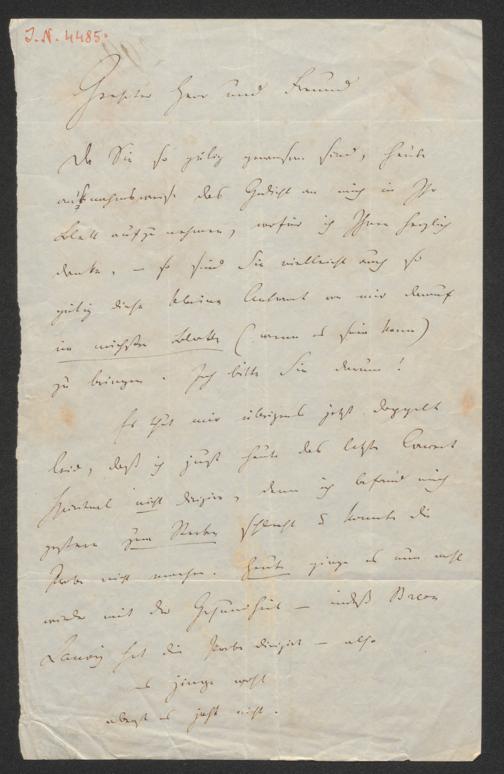 J.N. 4485.
Geehrter Herr und Freund
Da Sie so gütig gewesen sind, heute
ausnahmsweise das Gedicht an mich in Ihr
Blatt aufzunehmen, wofür ich Ihnen herzlich
danke, – so sind Sie vielleicht auch so
gütig diese kleine Antwort von mir darauf
im nächsten Blatte (wenn es sein kann)
zu bringen. Ich bitte Sie darum!
Es thut mir übrigens jetzt doppelt
leid, daß ich just heute das letzte Concert
Spirituel nicht dirigire, denn ich befand mich
gestern zum Sterben schlecht & konnte die
Probe nicht machen. Heute ginge es nun wohl
wieder mit der Gesundheit – indeß Baron
Lannoy hat die Probe dirigirt – also
es ginge wohl
aber es geht nicht.